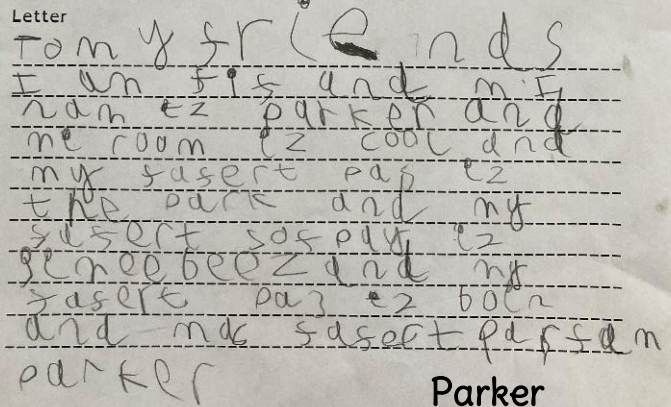 Letter
To my friends
I am fif and mi
nam ez parker and
me room ez cool and
my fasert pas ez
the park and my
fasert sofpay ez
geneebeez and my
fasert pa3 ez boln
and mas fasert parfam
parker
Parker